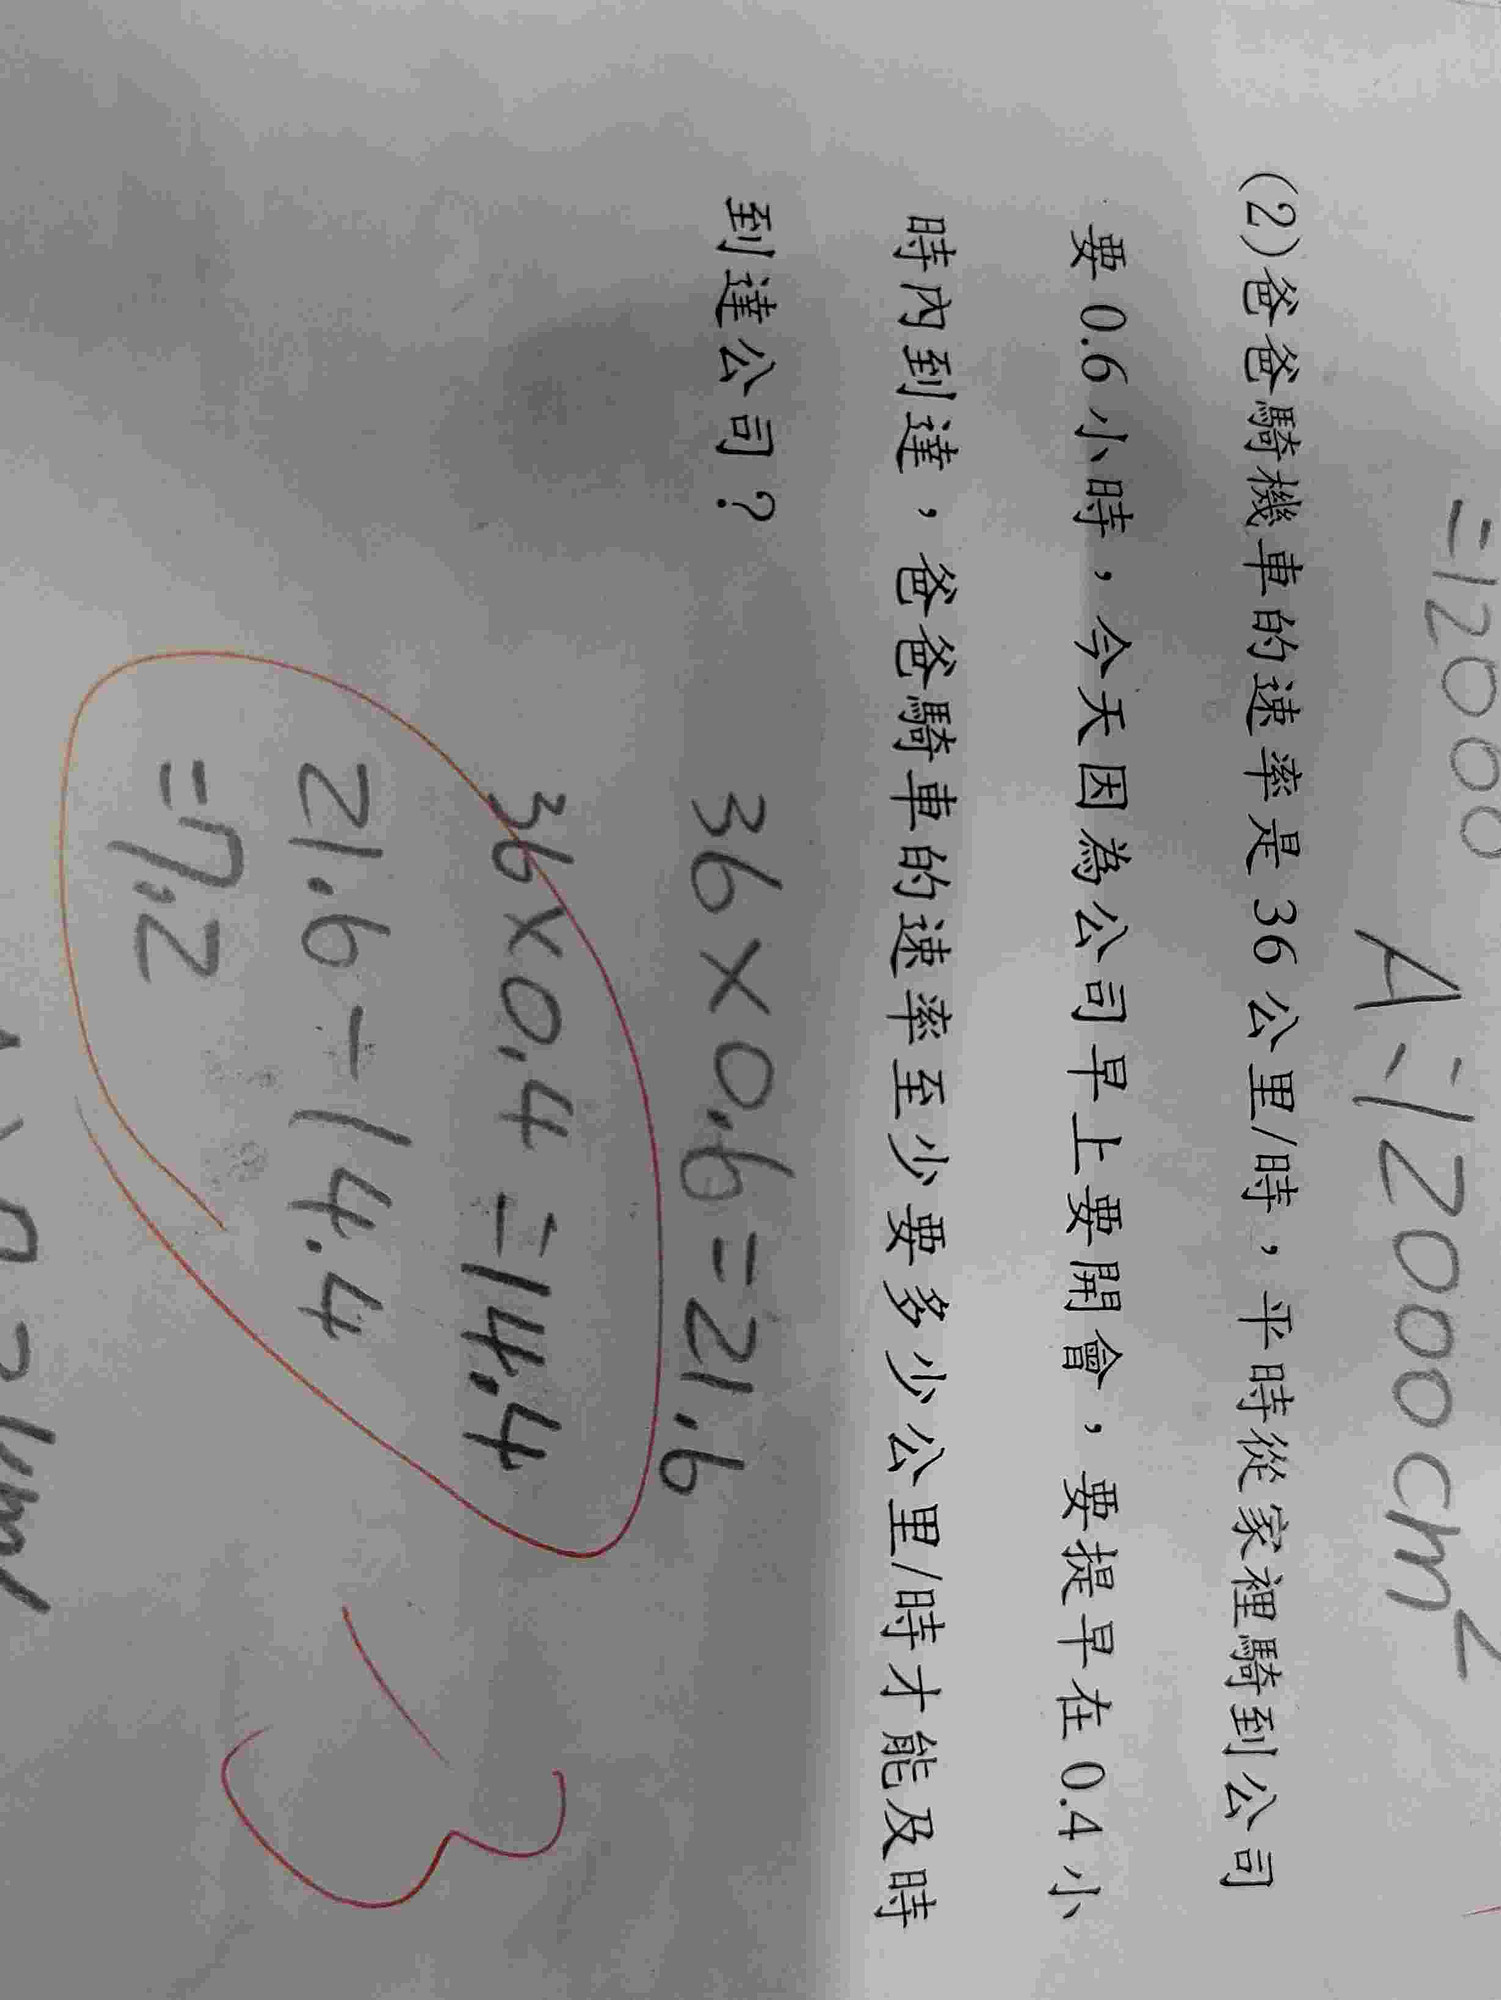 =12000
A:12000cm²
(2)爸爸騎機車的速率是36公里/時，平時從家裡騎到公司
要0.6小時，今天因為公司早上要開會，要提早在0.4小
時內到達，爸爸騎車的速率至少要多少公里/時才能及時
到達公司？
36×0.6=21.6
36×0.4=14.4
21.6-14.4
=7.2
-3